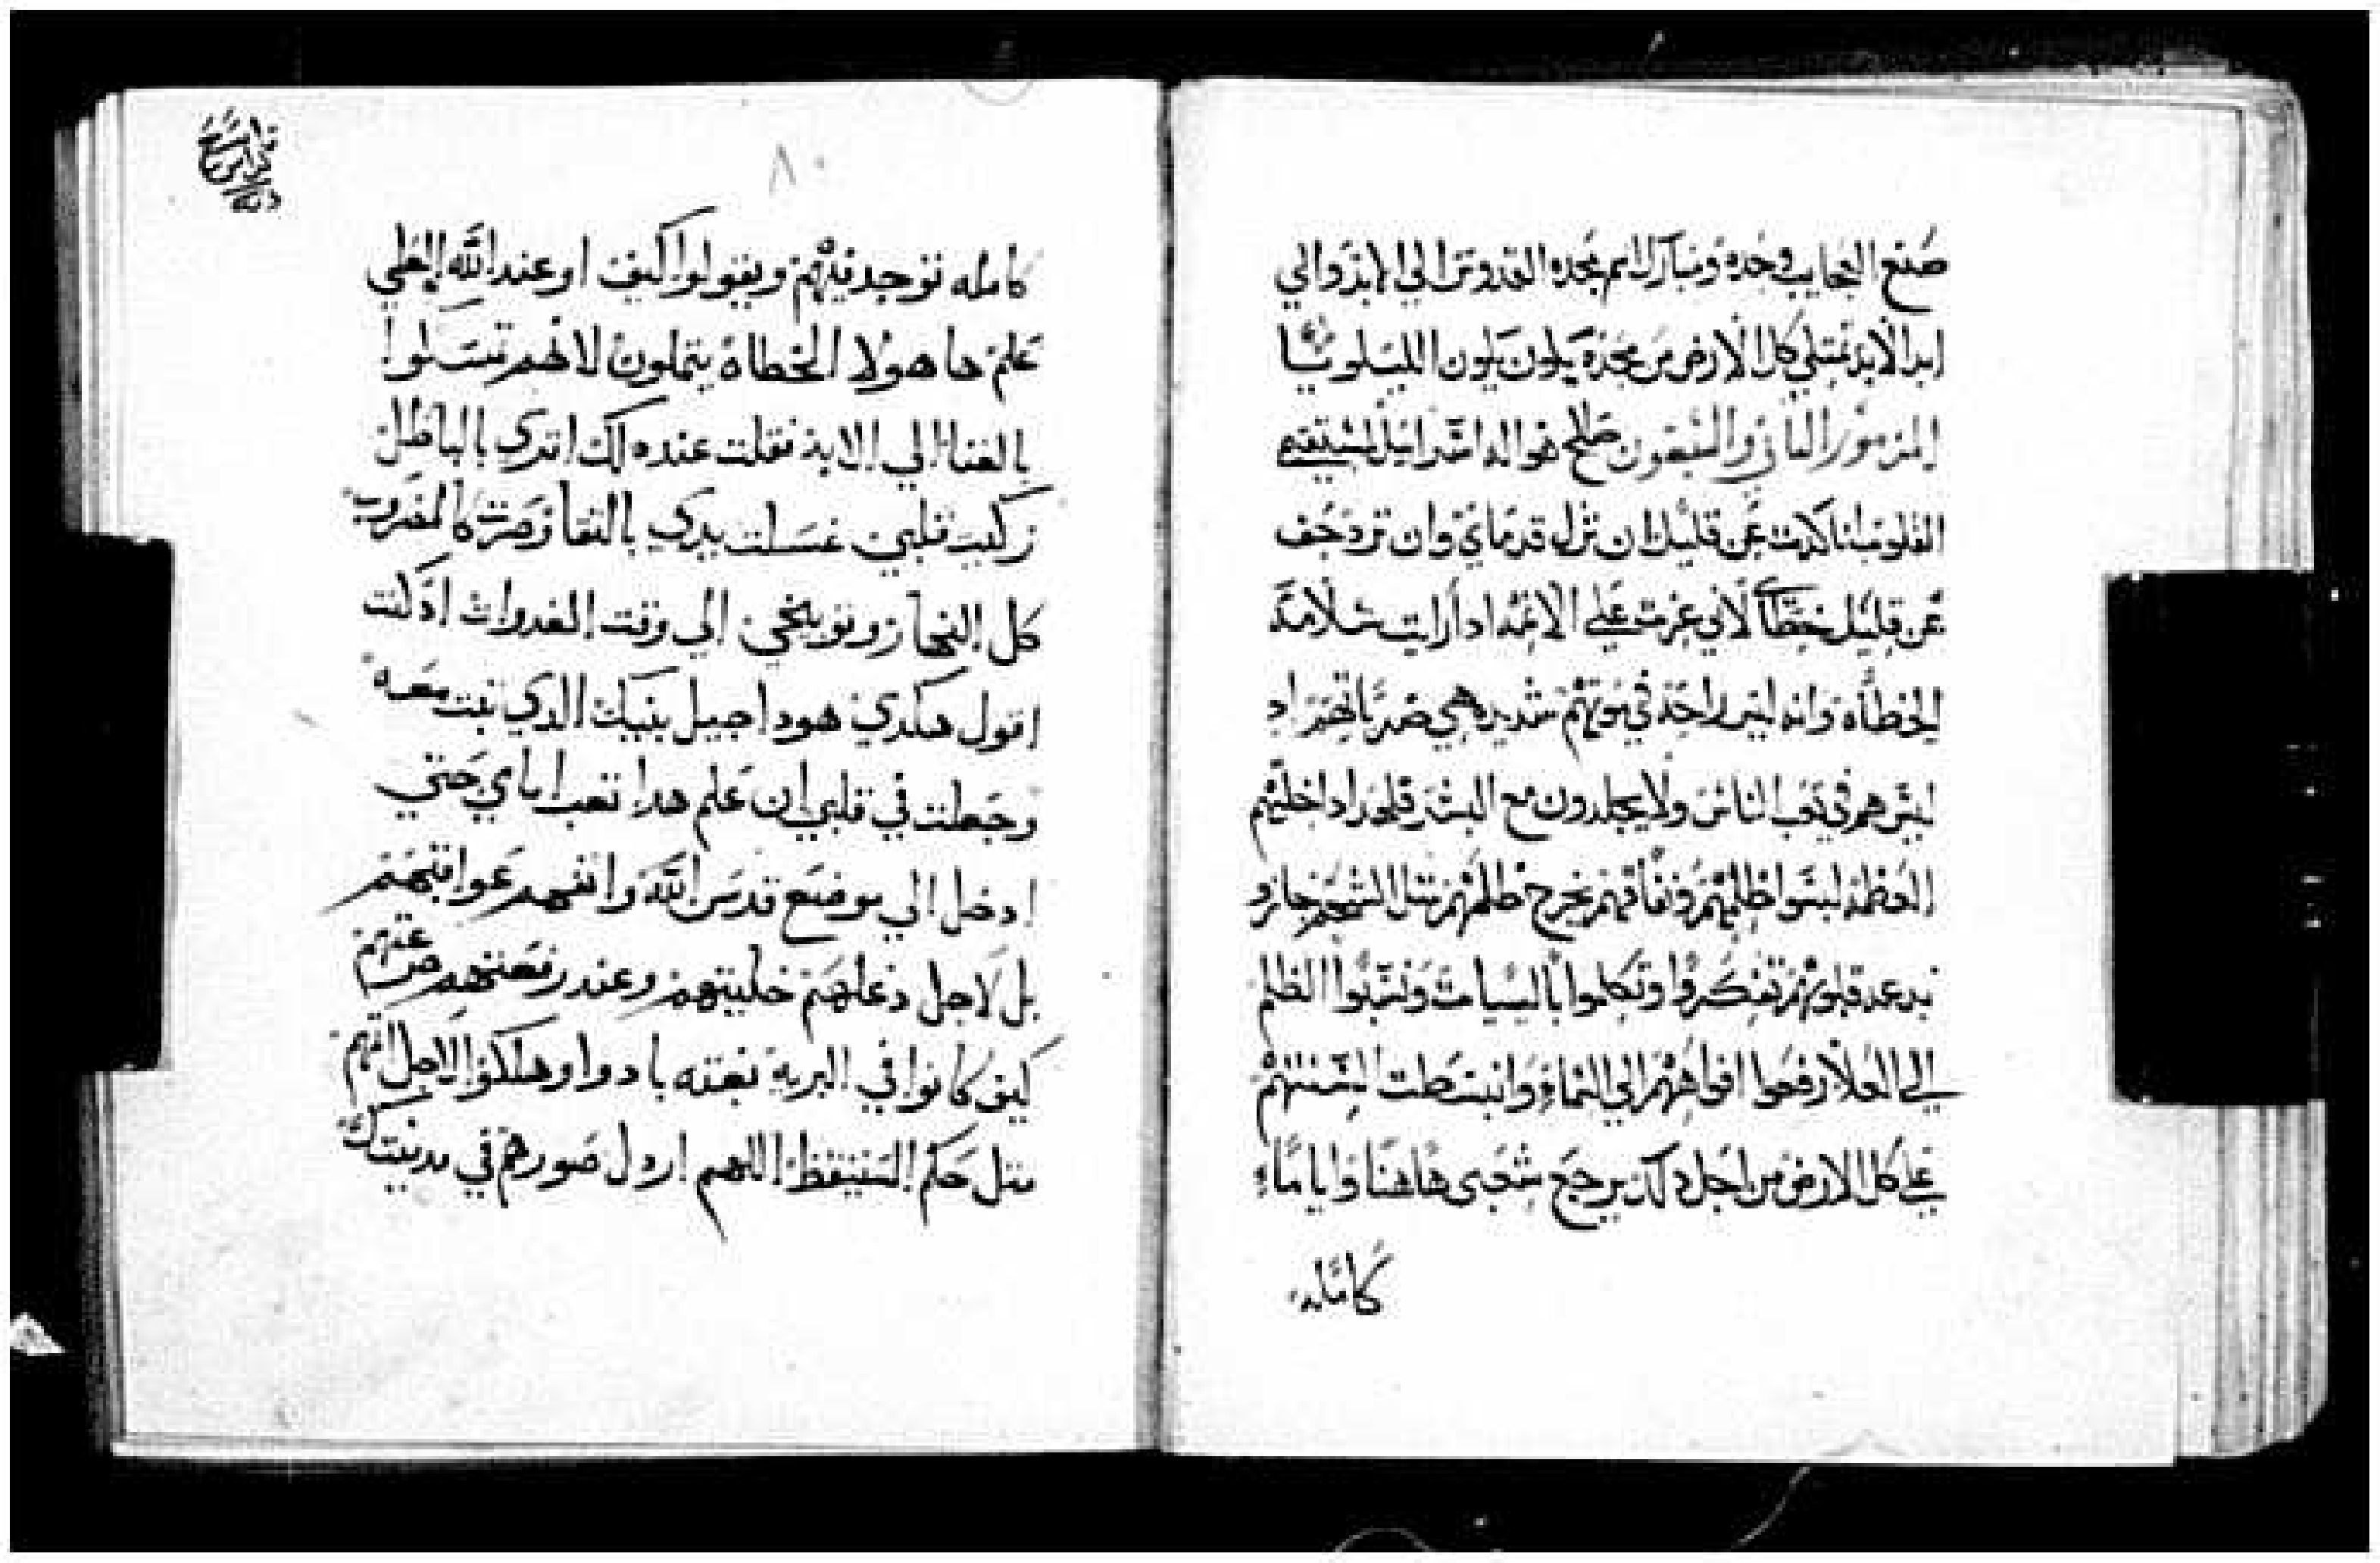 صنع العجايب وحده ومبارك اسم مجده القدوس الي الابد والي
ابد الابد تمتلي كل الارض من مجده يكون يكون الليلويا
المزمور الثاني والسبعون صالح هو اله اسرايل للمستقيمي
القلوب انا كادت عن قليل ان تزل قدماي وان تزدحف
عن قليل خطاي لاني غرت علي الاتمه اد ارايت سلامة
الخطاه وانه ليس راحه في موتهم شديده هي ضرباتهم اد
ليس هم في تعب الناس ولا يجلدون مع البشر فلهدا داخلتهم
العظمه لبسوا ظلمهم ونفاقهم يخرج ظلمهم مثل الشحم جازو
قلوبهم تفكروا وتكلموا بالسيات وتكلموا الظلم
الي العلا رفعوا افواههم الي السماء وانبسطت السنتهم
علي كل الارض من اجل دلك يرجع شعبي هاهنا واياما
كامله
٨٠
كامله توجد فيهم ويقولوا كيف او عند الله العلي
علم ها هولا الخطاه يتملون لانهم تمسكوا
بالغنا الي الابد فقلت عند دلك اتري بالباطل
زكيت قلبي غسلت يدي بالنقا وصرت كالمضروب
كل النهار وتوبيخي الي وقت الغدوات اد كنت
اقول هكدي هودا جيل بنيك الدي بنت معه
وجعلت في قلبي ان علم هدا تعب امامي حتي
ادخل الي موضع قدس الله وافهم عواقبهم
بل لاجل دغلهم خليتهم وعند رفعتهم صرعتهم
كيف كانوا في البرية بغته بادوا وهلكوا لاجل اتمهم
مثل حلم المستيقظ اللهم اردل صورهم في مدينتك